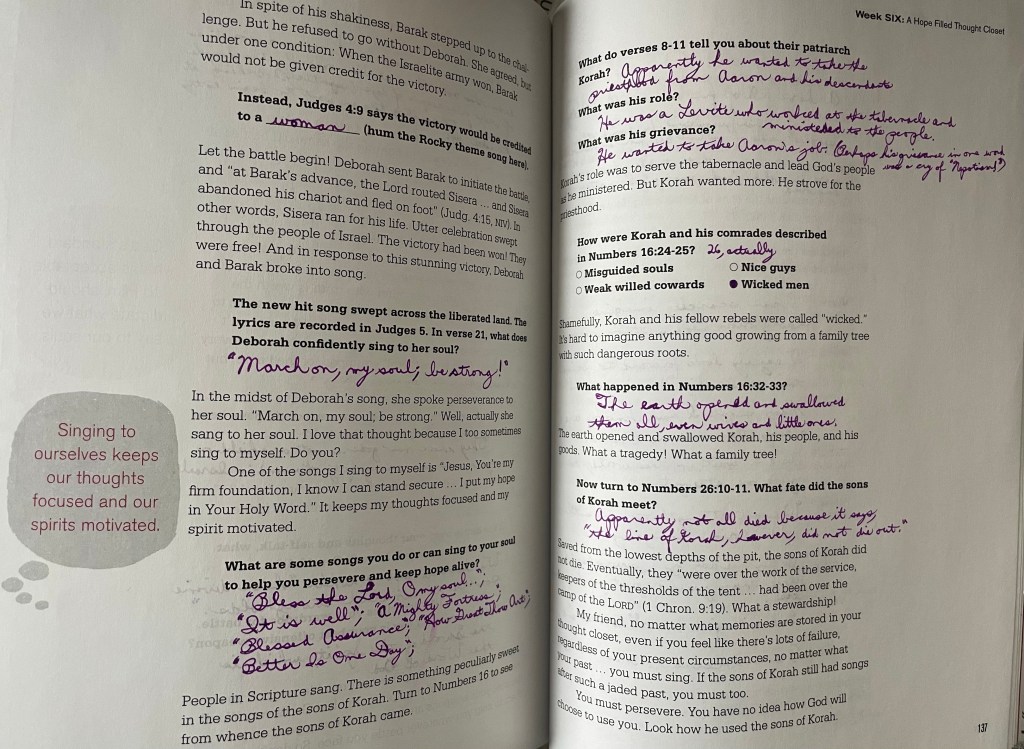 In spite of his shakiness, Barak stepped up to the chal-
lenge. But he refused to go without Deborah. She agreed, but
under one condition: When the Israelite army won, Barak
would not be given credit for the victory.
Instead, Judges 4:9 says the victory would be credited
to a woman (hum the Rocky theme song here).
Let the battle begin! Deborah sent Barak to initiate the battle,
and “at Barak’s advance, the Lord routed Sisera ... and Sisera
abandoned his chariot and fled on foot” (Judg. 4:15, NIV). In
other words, Sisera ran for his life. Utter celebration swept
through the people of Israel. The victory had been won! They
were free! And in response to this stunning victory, Deborah
and Barak broke into song.
The new hit song swept across the liberated land. The
lyrics are recorded in Judges 5. In verse 21, what does
Deborah confidently sing to her soul?
"March on, my soul; be strong!"
In the midst of Deborah’s song, she spoke perseverance to
her soul. “March on, my soul; be strong.” Well, actually she
sang to her soul. I love that thought because I too sometimes
sing to myself. Do you?
One of the songs I sing to myself is “Jesus, You’re my
firm foundation, I know I can stand secure ... I put my hope
in Your Holy Word.” It keeps my thoughts focused and my
spirit motivated.
Singing to
ourselves keeps
our thoughts
focused and our
spirits motivated.
What are some songs you do or can sing to your soul
to help you persevere and keep hope alive?
"Bless the Lord, O my soul...";
"It is well"; "A Mighty Fortress";
"Blessed Assurance"; "How Great Thou Art";
"Better Is One Day";
People in Scripture sang. There is something peculiarly sweet
in the songs of the sons of Korah. Turn to Numbers 16 to see
from whence the sons of Korah came.
Week SIX: A Hope Filled Thought Closet
What do verses 8-11 tell you about their patriarch
Korah? Apparently he wanted to take the
priesthood from Aaron and his descendants
What was his role?
He was a Levite who worked at the tabernacle and
ministered to the people.
What was his grievance?
He wanted to take Aaron's job. (Perhaps his grievance in one word
was a cry of "Nepotism!")
Korah’s role was to serve the tabernacle and lead God’s people
as he ministered. But Korah wanted more. He strove for the
priesthood.
How were Korah and his comrades described
in Numbers 16:24-25? 26, actually
Misguided souls Nice guys
Weak willed cowards Wicked men
Shamefully, Korah and his fellow rebels were called “wicked.”
It’s hard to imagine anything good growing from a family tree
with such dangerous roots.
What happened in Numbers 16:32-33?
The earth opened and swallowed
them all, even wives and little ones.
The earth opened and swallowed Korah, his people, and his
goods. What a tragedy! What a family tree!
Now turn to Numbers 26:10-11. What fate did the sons
of Korah meet?
Apparently not all died because it says,
"the line of Korah, however, did not die out."
Saved from the lowest depths of the pit, the sons of Korah did
not die. Eventually, they “were over the work of the service,
keepers of the thresholds of the tent ... had been over the
camp of the LORD” (1 Chron. 9:19). What a stewardship!
My friend, no matter what memories are stored in your
thought closet, even if you feel like there’s lots of failure,
regardless of your present circumstances, no matter what
your past ... you must sing. If the sons of Korah still had songs
after such a jaded past, you must too.
You must persevere. You have no idea how God will
choose to use you. Look how he used the sons of Korah.
137